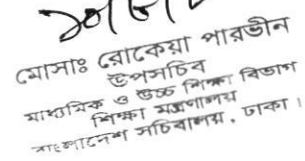 মোসাঃ রোকেয়া পারভীন
উপসচিব
মাধ্যমিক ও উচ্চ শিক্ষা বিভাগ
শিক্ষা মন্ত্রণালয়
বাংলাদেশ সচিবালয়, ঢাকা।